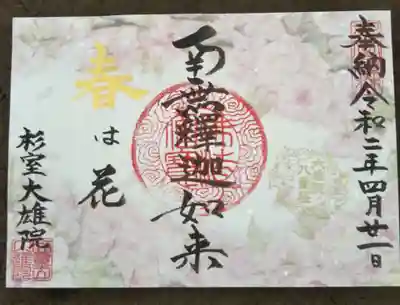 奉納令和二年四月廿一日
南無釋迦如来
春は花
杉室大雄院